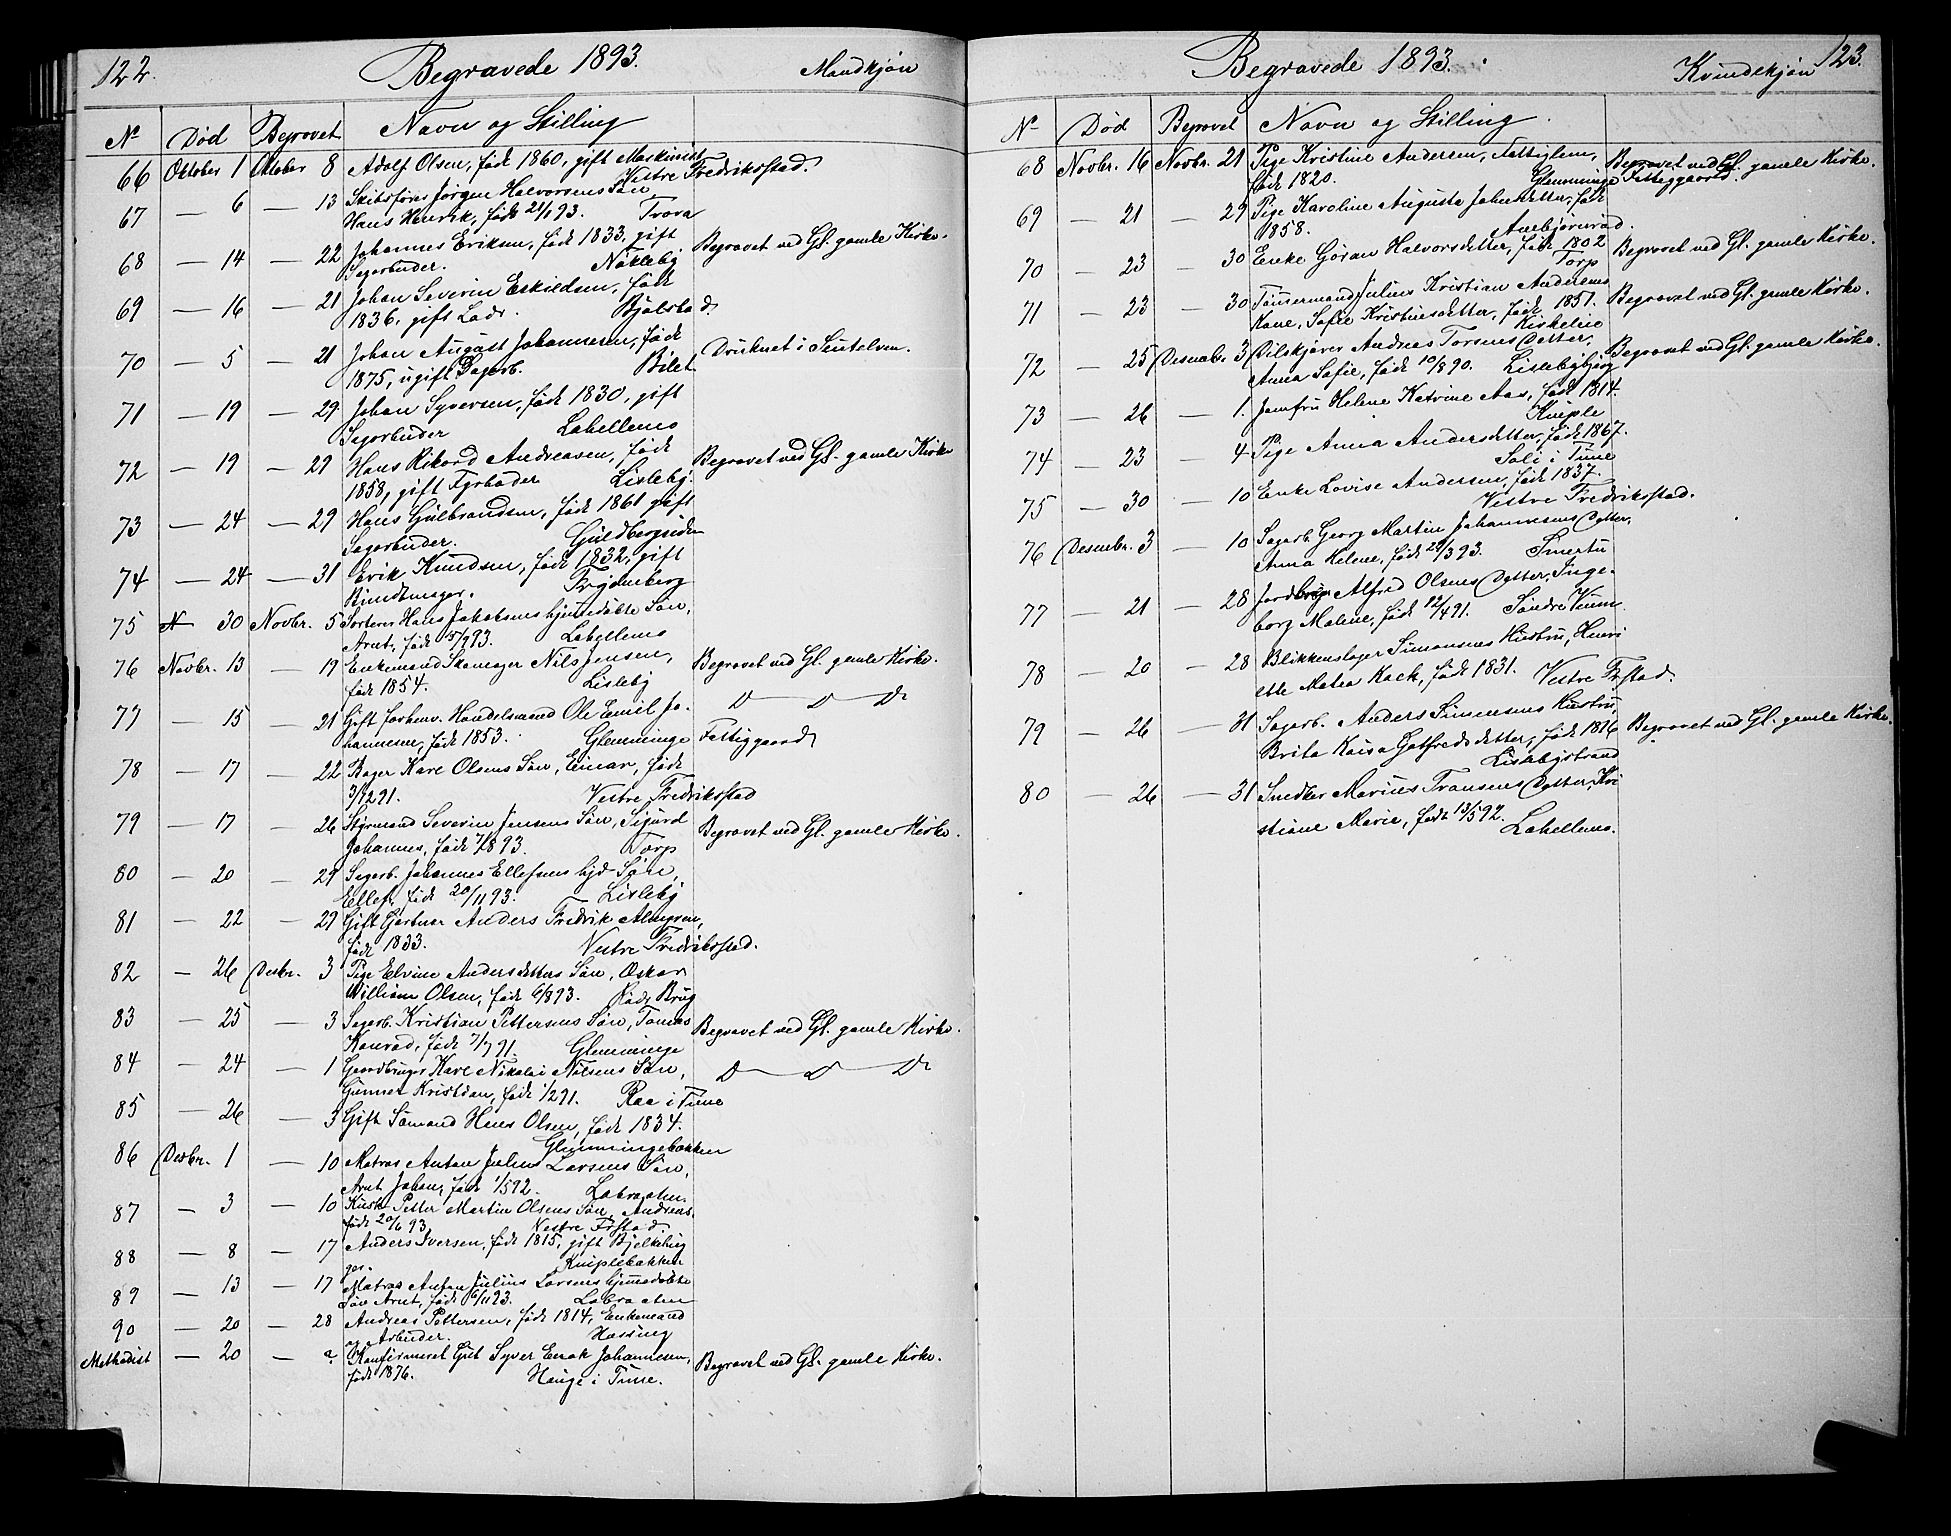 122. Begravede 1893. Mandkjøn
No Død Begravet Navn og Stilling
66 Oktober 1 Oktober 8 Adolf Olsen, født 1860, gift Maskinist
Vestre Fredriksstad.
67 — 6 — 13 Skibsfører Jørgen Halvorsens Søn
Hans Henrik, født 21/1 93. Trora
68 — 14 — 22 Johannes Eriksen, født 1833, gift Begravet ved Gl. gamle Kirke.
Sagarbeider. Nøkleby
69 — 16 — 21 Johan Severin Eskildsen, født
1836, gift Lods. Bjølstad
70 — 5 — 21 Johan August Johannesen, født Druknet i Seutelven.
1875, ugift Sagarb. Bilet
71 — 19 — 29 Johan Syversen, født 1830, gift
Sagarbeider Labellens
72 — 19 — 29 Hans Rikard Andreasen, født Begravet ved Gl. gamle Kirke
1858, gift Fyrbøder Lisleby.
73 — 24 — 29 Hans Gulbrandsen, født 1861 gift
Sagarbeider. Guldbergsiden
74 — 24 — 31 Erik Knudsen, født 1832, gift
Bundtmager. Frydenberg
75 N 30 Novbr. 5 Sorterer Hans Jakobsens hjemmedøbte Søn,
Arnt, født 15/9 93. Labellens
76 Novbr. 13 — 19 Enkemand Skomager Nils Jensen, Begravet ved Gl. gamle Kirke.
født 1854. Lisleby
77 — 15 — 21 Gift forhenv. Handelsmand Ole Emil Jo- D — D — D
hannesen, født 1853. Glemminge Fattiggaard
78 — 17 — 22 Bager Kare Olsens Søn, Einar, født
3/12 91. Vestre Fredriksstad
79 — 17 — 26 Styrmand Severin Jensens Søn, Sigurd Begravet ved Gl. gamle Kirke.
Johannes, født 7/8 93. Torp
80 — 20 — 29 Sagarb. Johannes Ellefsens hjd Søn,
Ellef, født 20/11 93. Lisleby
81 — 22 — 29 Gift Gartner Anders Fredrik Almgren,
født 1833. Vestre Fredriksstad.
82 — 26 Desbr. 3 Pige Elvine Andersdatters Søn, Oskar
William Olsen, født 6/8 93. Røds Brug
83 — 25 — 3 Sagarb. Kristian Pettersens Søn, Tomas Begravet ved Gl. gamle Kirke.
Konrad, født 7/7 91. Glemminge
84 — 24 — 1 Gaardbruger Karl Nikolai Nilsens Søn, D — D — D
Gunnar Kristian, født 1/2 91. Raa i Tune
85 — 26 — 3 Gift Sømand Hans Olsen, født 1834.
Glemmingebakken
86 Desbr. 1 — 10 Matros Anton Julius Larsens Søn,
Arnt Johan, født 1/5 92. Labraaten.
87 — 3 — 10 Kusk Petter Martin Olsens Søn, Andreas,
født 20/6 93. Vestre Frstad.
88 — 8 — 17 Anders Iversen, født 1815, gift Bjelkehug
ger. Kniplebakken
89 — 13 — 17 Matros Anton Julius Larsens hjemmedøbte
Søn Arnt, født 6/11 93. Labraaten
90 — 20 — 28 Andreas Pettersen, født 1814, Enkemand
og Arbeider. Hassing
Methodist — 20 — ? Konfirmeret Gut Syver Enok Johannesen, Begravet ved Gl. gamle Kirke.
født 1876. Hauge i Tune.
Begravede 1893. Kvindekjøn 123.
No Død Begravet Navn og Stilling
68 Novbr. 16 Novbr. 21 Pige Kristine Andersen, Fattiglem, Begravet ved Gl. gamle Kirke.
født 1820. Glemminge Fattiggaard.
69 — 21 — 29 Pige Karoline Auguste Johnsdatter, født
1858. Aaebjørnrød.
70 — 23 — 30 Enke Gøran Halvorsdatter, født 1802 Begravet ved Gl. gamle Kirke.
Torp
71 — 23 — 30 Tømmermand Julius Kristian Andersens Begravet ved Gl. gamle Kirke.
Kone, Sofie Kristiansdatter, født 1851.
Kirkelien
72 — 25 Desember 3 Pilskjører Andreas Torsens Datter, Begravet ved Gl. gamle Kirke.
Anna Sofie, født 10/8 90. Lislebybjerg
73 — 26 — 1. Jomfru Helene Katrine Aas, født 1814.
Kniple
74 — 23 — 4 Pige Anna Andersdatter, født 1867.
Soli i Tune
75 — 30 — 10 Enke Lovise Andersen, født 1837.
Vestre Fredriksstad.
76 Desembr. 3 — 10 Sagarb. Georg Martin Johannesens Datter,
Anna Helene, født 29/3 93. Smertu
77 — 21 — 28 Jordbrug. Alfred Olsens Datter, Inge-
borg Malene, født 12/4 91. Søndre Kum.
78 — 20 — 28 Blikkenslager Simonsens Hustru, Henri
ette Matea Kock, født 1831. Vestre Frstad.
79 — 26 — 31 Sagarb. Anders Simensens Hustru,
Brita Kaisa Gotfredsdatter, født 1816 Begravet ved Gl. gamle Kirke.
Lislebystrand
80 — 26 — 31 Snedker Marius Fransens Datter, Kri
stiane Marie, født 13/5 92. Labellens.